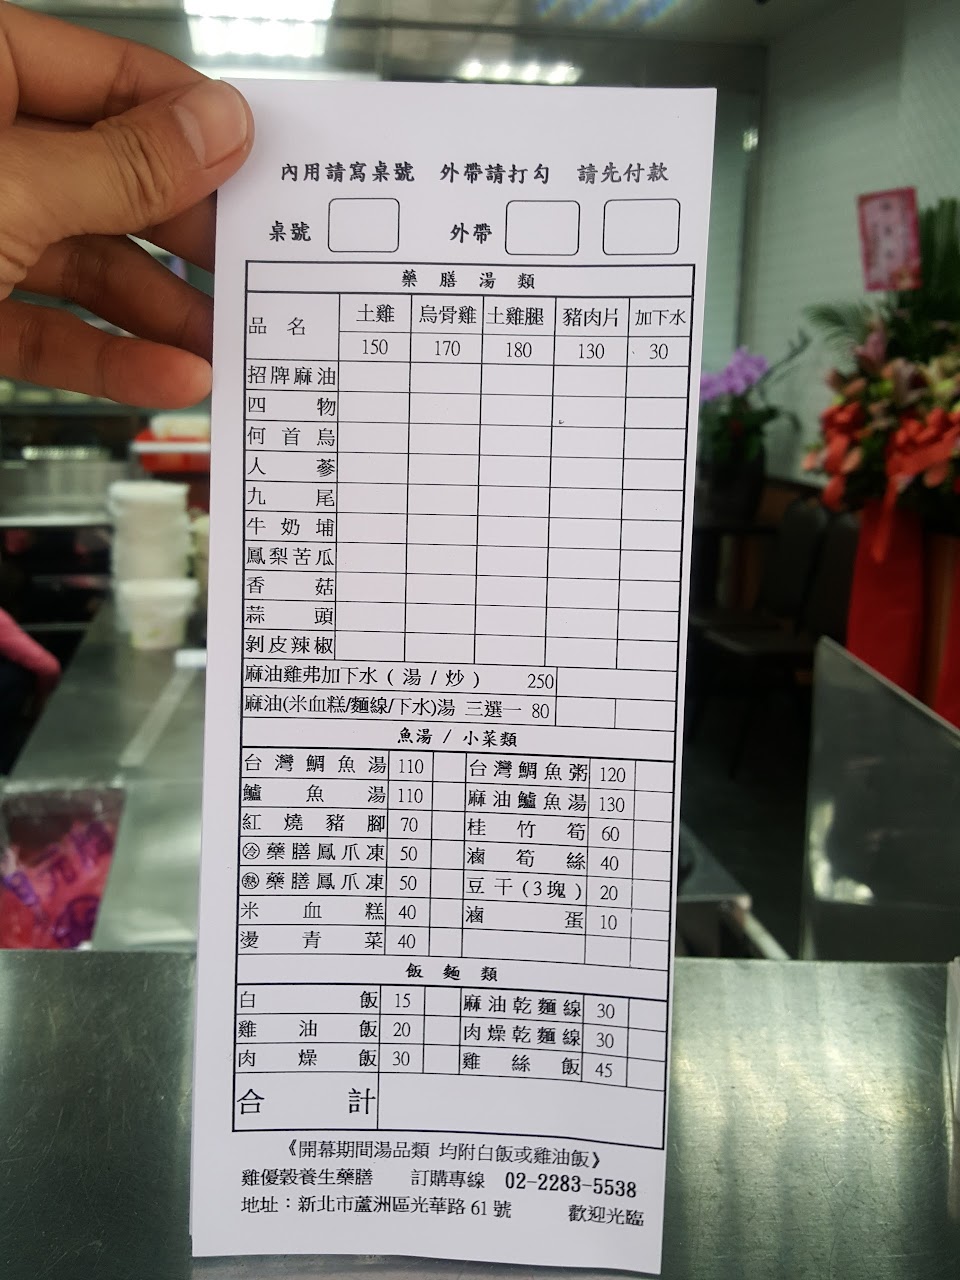 內用請寫桌號 外帶請打勾 請先付款
桌號 外帶
藥膳湯類
品名 土雞 烏骨雞 土雞腿 豬肉片 加下水
150 170 180 130 30
招牌麻油
四物
何首烏
人蔘
九尾
牛奶埔
鳳梨苦瓜
香菇
蒜頭
剝皮辣椒
麻油雞弗加下水(湯/炒) 250
麻油(米血糕/麵線/下水)湯 三選一 80
魚湯/小菜類
台灣鯛魚湯 110 台灣鯛魚粥 120
鱸魚湯 110 麻油鱸魚湯 130
紅燒豬腳 70 桂竹筍 60
㊀冷藥膳鳳爪凍 50 滷筍絲 40
熱藥膳鳳爪凍 50 豆干(3塊) 20
米血糕 40 滷蛋 10
燙青菜 40
飯麵類
白飯 15 麻油乾麵線 30
雞油飯 20 肉燥乾麵線 30
肉燥飯 30 雞絲飯 45
合計
《開幕期間湯品類 均附白飯或雞油飯》
雞優穀養生藥膳 訂購專線 02-2283-5538
地址：新北市蘆洲區光華路61號 歡迎光臨